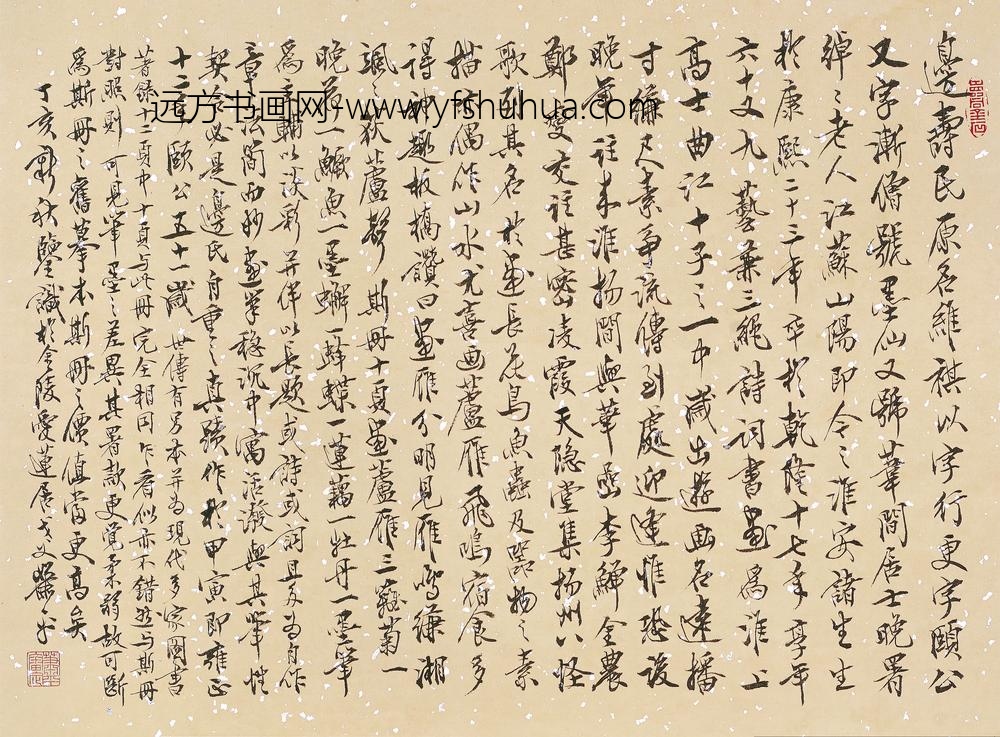 邊壽民原名維祺以字行更字頤公
又字漸僧號墨仙又號葦間居士晚署
綽〻老人江蘇山陽即今之淮安諸生生
於康熙二十三年卒於乾隆十七年享年
六十又九藝兼三絕詩詞書畫為淮上
高士曲江十子之一中歲出遊畫名遠播
寸縑尺素爭流傳到處迎逢惟恐後
晚年往來淮揚間與華喦李鱓金農
鄭燮交往甚密凌霞天隱堂集揚州八怪
歌列其名於畫長花鳥魚蟲及器物之素
描亦偶作山水尤喜畫蘆雁飛鳴宿食多
得神趣板橋讚曰畫雁分明見雁鳴縑湘
颯〻荻蘆聲斯冊十頁畫蘆雁三菊一
晚一鱖魚一墨蟹一蝶一蓮藕一牡丹一墨筆
為主輔以淡彩并伴以長題或詩或詞且多為自作
章法簡而妙畫筆穩沉中寓活潑與其筆性
契必是邊氏自重之真蹟作於甲寅即雍正
十二年頤公五十一歲世傳有另本并為現代多家圖書
著錄十二頁中十頁与此冊完全相同乍看似亦不錯然与斯冊
對照則可見筆墨之差異其署款更覺柔弱故可斷
為斯冊之舊摹本斯冊之價值當更高矣
丁亥新秋鑒識於金陵愛蓮居
远方书画网-www.yfshuhua.com